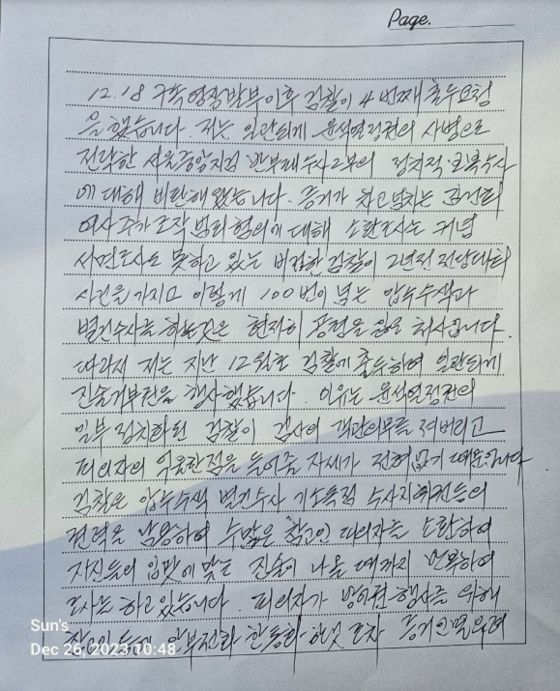 Page.
12.18 구속영장발부이후 검찰이 4번째 출두요청
을 했습니다. 저는 일관되게 윤석열정권의 사병으로
전락한 서울중앙지검 반부패수사2부의 정치적 보복수사
에 대해 비판해 왔습니다. 증거가 차고 넘치는 김건희
여사 주가조작 범죄혐의에 대해 소환조사는 커녕
서면조사도 못하고 있는 비겁한 검찰이 2년전 전당대회
사건을 가지고 이렇게 100번이 넘는 압수수색과
별건수사를 하는것은 현저히 공정을 잃은 처사입니다.
따라서 저는 지난 12월초 검찰에 출두하여 일관되게
진술거부권을 행사했습니다. 이유는 윤석열정권의
일부 정치화된 검찰이 검사의 객관의무를 져버리고
피의자의 억울한점을 들어줄 자세가 전혀 없기 때문입니다
검찰은 압수수색 별건수사 기소독점 수사지휘권등의
권력을 남용하여 수많은 참고인 피의자를 소환하여
자신들의 입맛에 맞는 진술이 나올 때까지 반복하여
조사를 하고 있습니다. 피의자가 방어권 행사를 위해
참고인들에 안부전화 한통화 한것 조차 증거인멸우려
Sun's
Dec 26, 2023 10:48